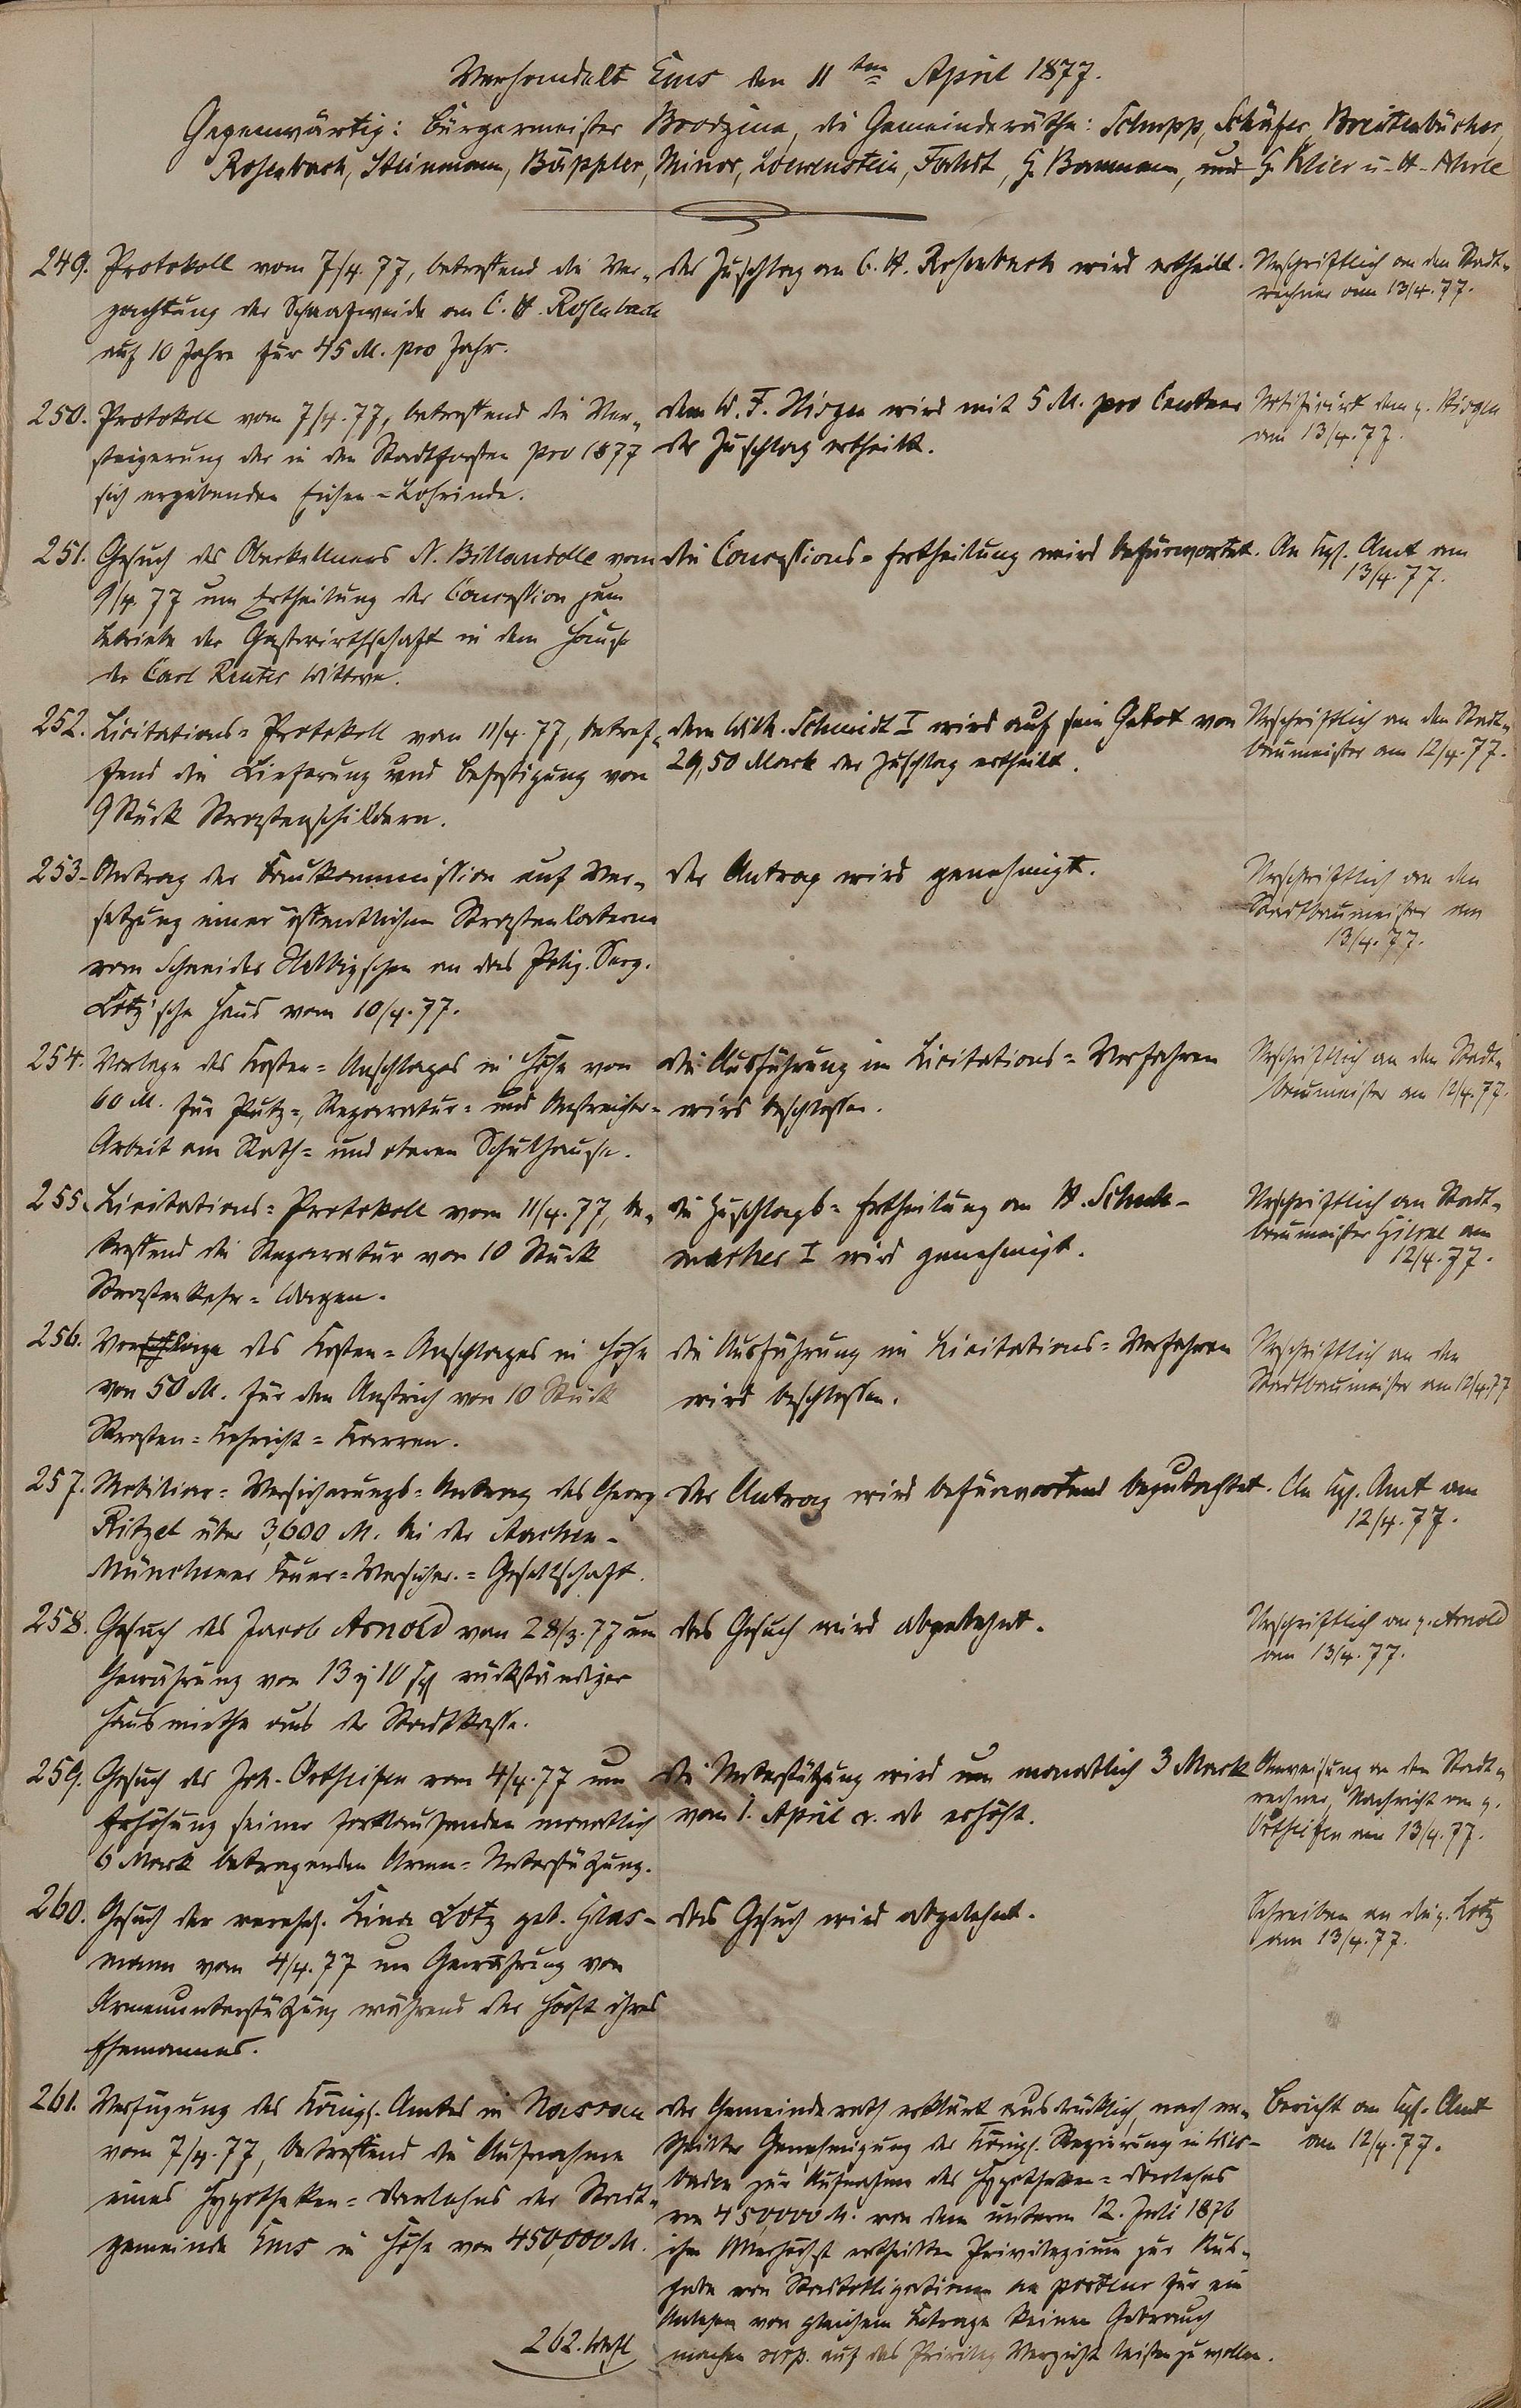 Verhandelt Ems den 11ten April 1877.
Gegenwärtig: Bürgermeister Brodzina, die Gemeinderäthe: Schupp, Schäfer, Breitebücher,
Rosenbach, Steinmann, Bäppler, Minor, Loewenstein, Fahdt, H. Baumann, und H. Klier u. A.
249. Protokoll vom 7/4. 77, betreffend die Ver-
pachtung der Schaafweide an C. H. Rosenbach
auf 10 Jahre für 45 M. pro Jahr.
der Zuschlag an C. H. Rosenbach wird ertheilt.
Urschriftlich an den Stadt-
rechner am 13/4. 77.
250. Protokoll vom 7/4. 77, betreffend die Ver-
steigerung der in den Stadtforsten pro 1877
sich ergebenden Eichen-Lohrinde.
dem W. F. Hisgen wird mit 5 M. pro Centner
der Zuschlag ertheilt.
Notificirt dem p. Hisgen
am 13/4. 77.
251. Gesuch des Oberkellners N. Billaudelle vom
9/4. 77 um Ertheilung der Concession zum
Betriebe der Gastwirthschaft in dem Hause
der Carl Reuter Wittwe.
die Concessions-Ertheilung wird befürwortet.
An Kgl. Amt am
13/4. 77.
252. Licitations-Protokoll vom 11/4. 77, betref-
fend die Lieferung und Befestigung von
9 Stück Strassenschildern.
dem Wilh. Schmidt I wird auf sein Gebot von
29,50 Mark der Zuschlag ertheilt.
Urschriftlich an den Stadt-
baumeister am 12/4. 77.
253. Antrag der Baukommission auf Ver-
setzung einer öffentlichen Strassenlaterne
vom Schneider Helbig'schen an das Poliz. Serg.
Lotz'sche Haus vom 10/4. 77.
der Antrag wird genehmigt.
Urschriftlich an den
Stadtbaumeister am
13/4. 77.
254. Vorlage des Kosten-Anschlages in Höhe von
60 M. für Putz-, Reparatur- und Anstreicher-
Arbeit am Rath- und oberen Schulhause.
die Ausführung im Licitations-Verfahren
wird beschlossen.
Urschriftlich an den Stadt-
baumeister am 12/4. 77.
255. Licitations-Protokoll vom 11/4. 77, be-
treffend die Reparatur von 10 Stück
Strassenkehr-Wagen.
die Zuschlags-Ertheilung an H. Schuh-
macher I wird genehmigt.
Urschriftlich an Stadt-
baumeister am
12/4. 77.
256. Vorlage des Kosten-Anschlages in Höhe
von 50 M. für den Anstrich von 10 Stück
Strassen-Kehricht-Karren.
die Ausführung im Licitations-Verfahren
wird beschlossen.
Urschriftlich an den
Stadtbaumeister am 12/4. 77
257. Mobiliar-Versicherungs-Antrag des Georg
Ritzel über 3,600 M. bei der Aachen-
Münchener Feuer-Versicher.-Gesellschaft.
der Antrag wird befürwortend begutachtet.
An Kgl. Amt am
12/4. 77.
258. Gesuch des Jacob Arnold vom 28/3. 77 um
Gewährung von 13 10 rückständiger
Hausmiethe aus der Stadtkasse.
das Gesuch wird abgelehnt.
Urschriftlich an p. Arnold
am 13/4. 77.
259. Gesuch des Joh. Ortseifen vom 4/4. 77 um
Erhöhung seiner fortlaufenden monatlich
6 Mark betragenden Armen-Unterstützung.
die Unterstützung wird um monatlich 3 Mark
vom 1. April cr. ab erhöht.
Anweisung an den Stadt-
rechner, Nachricht an p.
Ortseifen am 13/4. 77.
260. Gesuch der verehel. Lina Lotz geb. Glas-
mann vom 4/4. 77 um Gewährung von
Armenunterstützung während der Haft ihres
Ehemannes.
das Gesuch wird abgelehnt.
Schreiben an die p. Lotz
am 13/4. 77.
261. Verfügung des Königl. Amtes in Nassau
vom 7/4. 77, betreffend die Aufnahme
eines Hypotheken-Darlehns der Stadt-
gemeinde Ems in Höhe von 450,000 M.
der Gemeinderath erklärt ausdrücklich, nach er-
theilter Genehmigung der Königl. Regierung in Wies-
baden zur Aufnahme des Hypotheken-Darlehns
von 450,000 M. von dem unterm 12. Juli 1876
ihm Allerhöchst ertheilten Privilegium zur Aus-
gabe von Stadtobligationen au porteur für ein
Anlehen von gleichem Betrage keinen Gebrauch
machen resp. auf das Privileg Verzicht leisten zu wollen.
Bericht an Kgl. Amt
am 12/4. 77.
262.